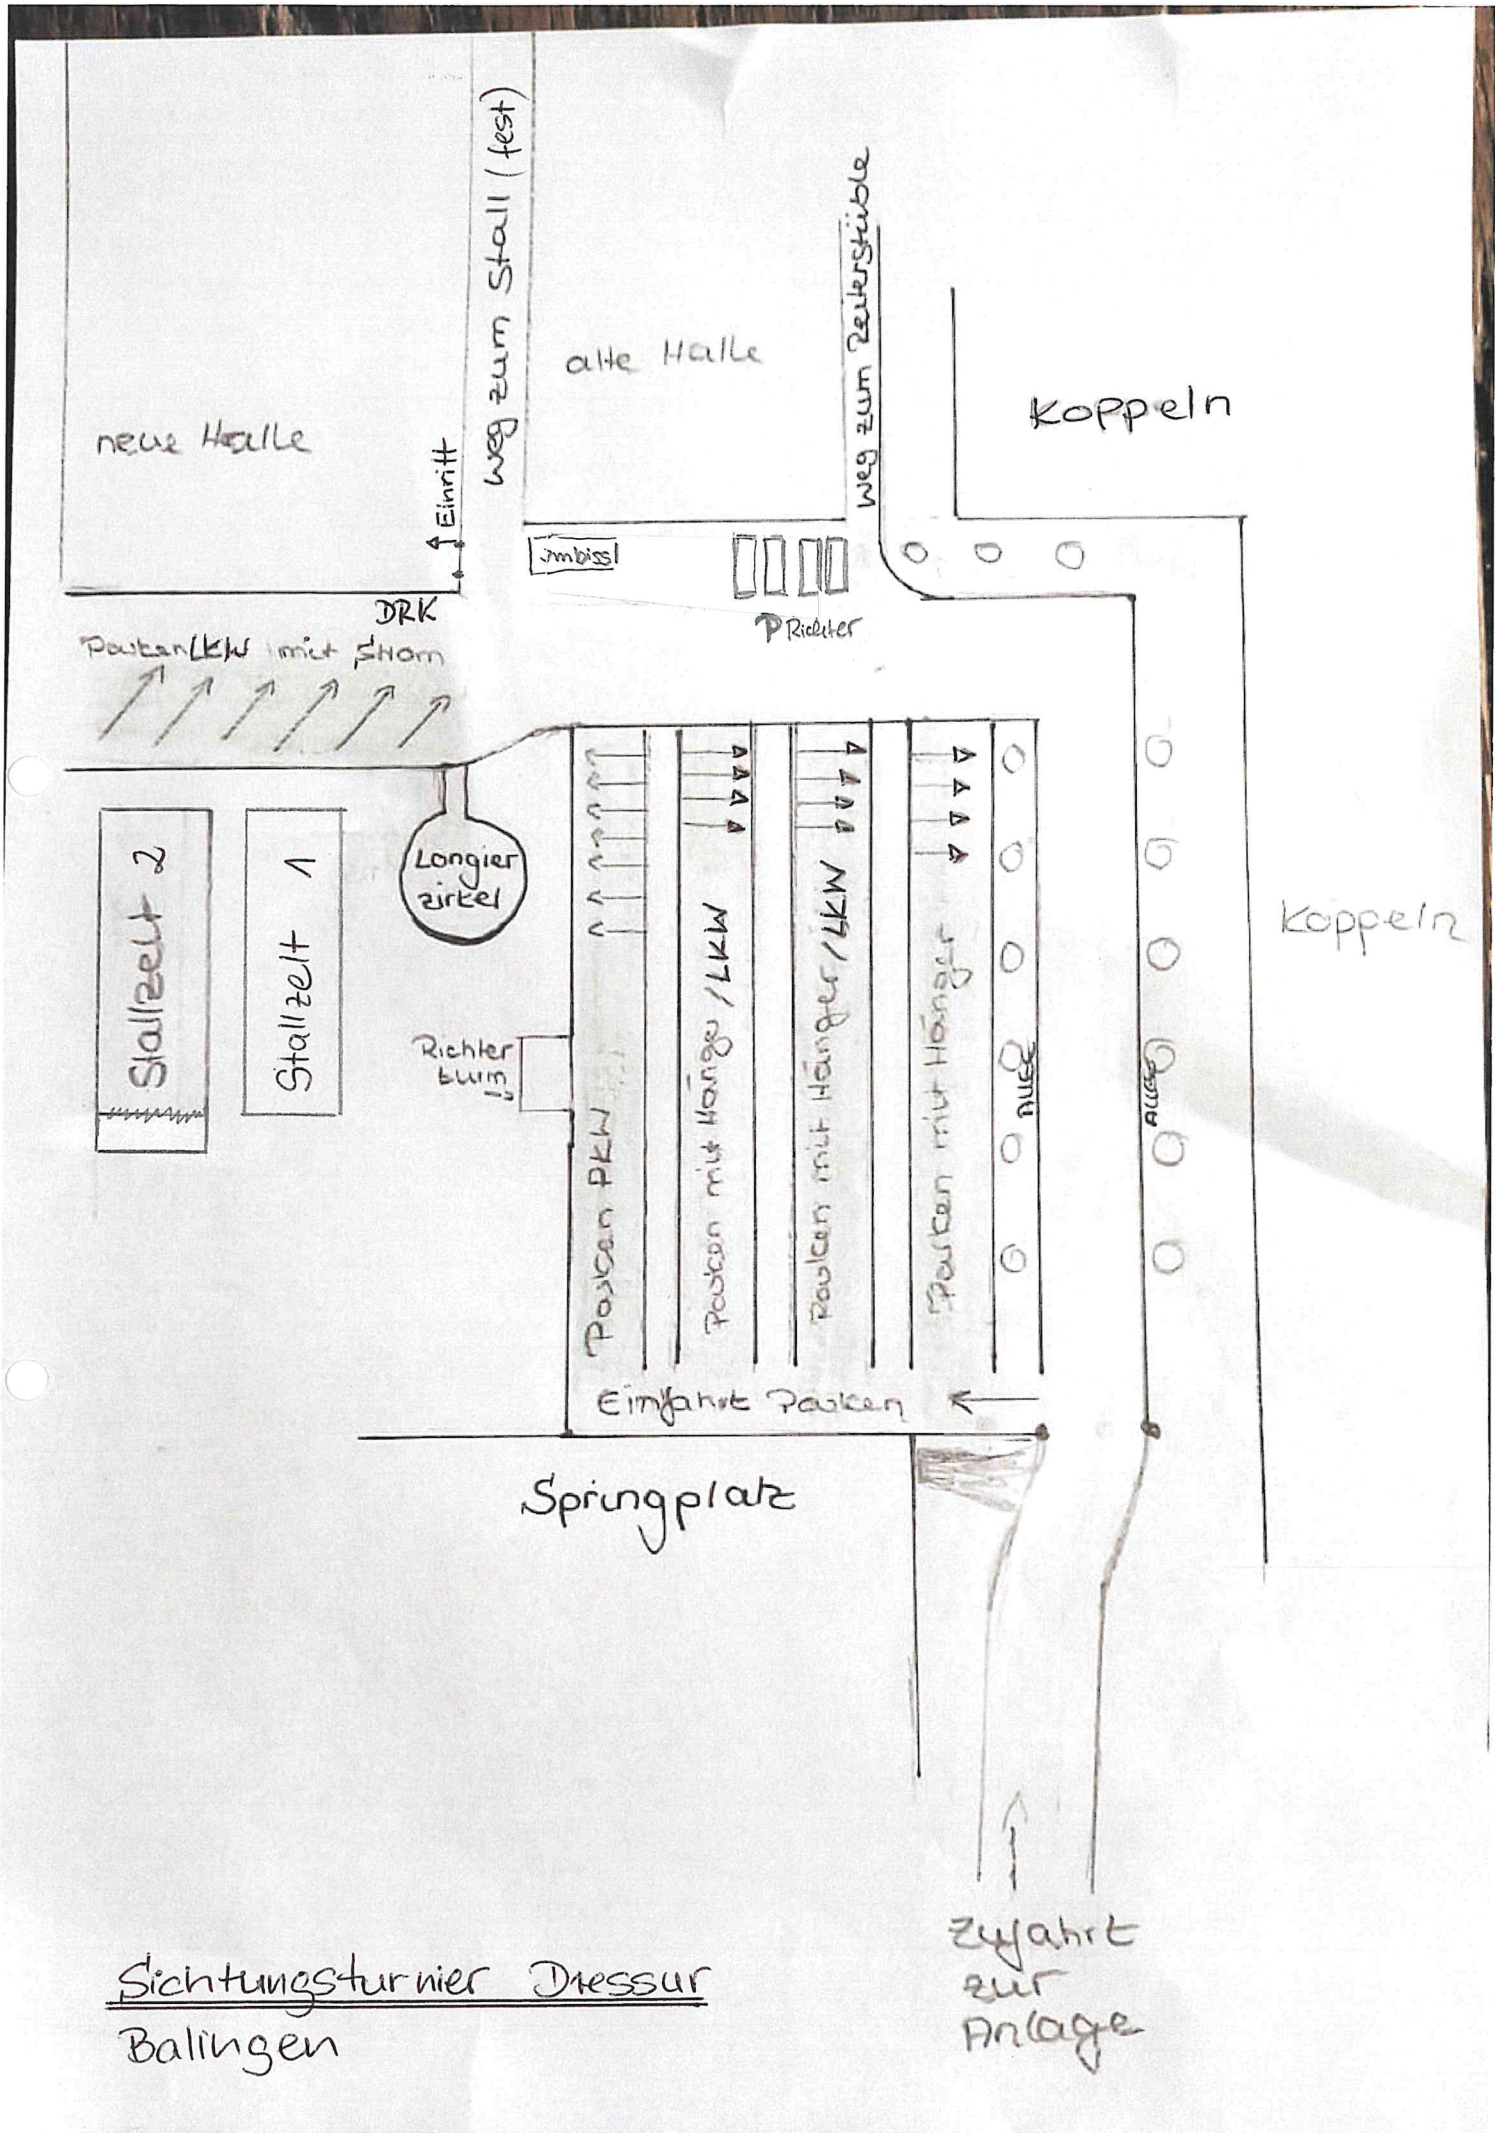 Weg zum Stall (fest)
Weg zum Reiterstüble
alte Halle
Koppeln
neue Halle
Einritt
Imbiss
DRK
P Richter
Parken LKW mit Strom
Longier
zirkel
Stallzelt 2
Stallzelt 1
Koppeln
Richter
turm
Parken PKW
Parken mit Hänger /LKW
Parken mit Hänger /LKW
Parken mit Hänger
Allee
Allee
Einfahrt Parken
Springplatz
Zufahrt
zur
Anlage
Sichtungsturnier Dressur
Balingen